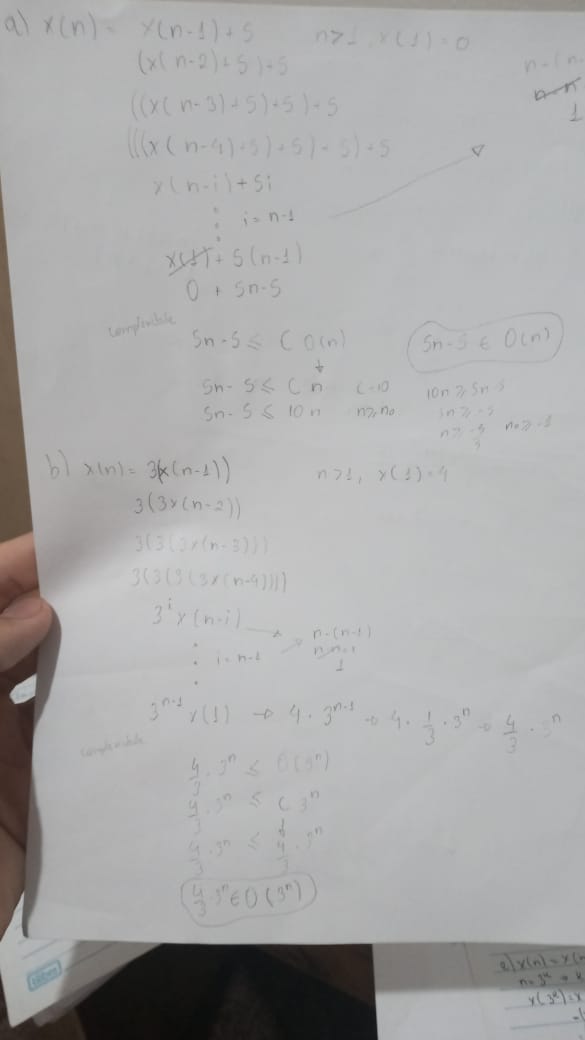 a) x(n) = x(n-1)+5 n>1, x(1)=0
(x(n-2)+5)+5
((x(n-3)+5)+5)+5
(((x(n-4)+5)+5)+5)+5
x(n-i)+5i
i=n-1
n-(n-
n-n
1
x(1)+5(n-1)
0 + 5n-5
complexidade
5n-5 ≤ C O(n)
5n-5 ∈ O(n)
5n-5 ≤ C n C=10
5n-5 ≤ 10n n≥n₀
10n ≥ 5n-5
n₀≥-1
b) x(n) = 3(x(n-1)) n>1, x(1)=4
3(3x(n-2))
3(3(3x(n-3)))
3(3(3(3x(n-4))))
3ⁱx(n-i)
n-(n-1)
n-n+1
1
i=n-1
3ⁿ⁻¹x(1) → 4·3ⁿ⁻¹ → 4·1/3·3ⁿ → 4/3·3ⁿ
complexidade
4/3·3ⁿ ≤ O(3ⁿ)
4/3·3ⁿ ≤ C 3ⁿ
4/3·3ⁿ ≤ 4/3·3ⁿ
4/3·3ⁿ ∈ O(3ⁿ)